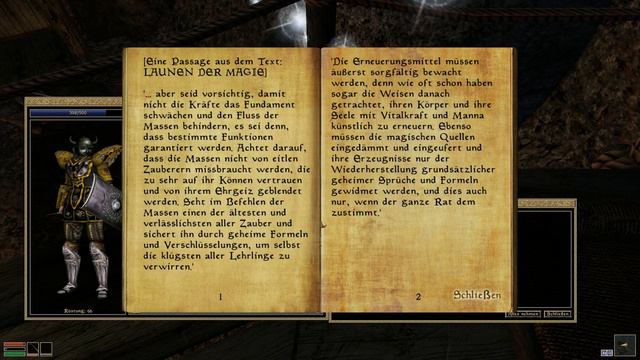 [Eine Passage aus dem Text:
LAUNEN DER MAGIE]
'... aber seid vorsichtig, damit
nicht die Kräfte das Fundament
schwächen und den Fluss der
Massen behindern, es sei denn,
dass bestimmte Funktionen
garantiert werden. Achtet darauf,
dass die Massen nicht von eitlen
Zauberern missbraucht werden, die
zu sehr auf ihr Können vertrauen
und von ihrem Ehrgeiz geblendet
werden. Seht im Befehlen der
Massen einen der ältesten und
verlässlichsten aller Zauber und
sichert ihn durch geheime Formeln
und Verschlüsselungen, um selbst
die klügsten aller Lehrlinge zu
verwirren.'
1
'Die Erneuerungsmittel müssen
äußerst sorgfältig bewacht
werden, denn wie oft schon haben
sogar die Weisen danach
getrachtet, ihren Körper und ihre
Seele mit Vitalkraft und Manna
künstlich zu erneuern. Ebenso
müssen die magischen Quellen
eingedämmt und eingeufert und
ihre Erzeugnisse nur der
Wiederherstellung grundsätzlicher
geheimer Sprüche und Formeln
gewidmet werden, und dies auch
nur, wenn der ganze Rat dem
zustimmt.'
2
Schließen
Rüstung: 66
Alles nehmen
Schließen